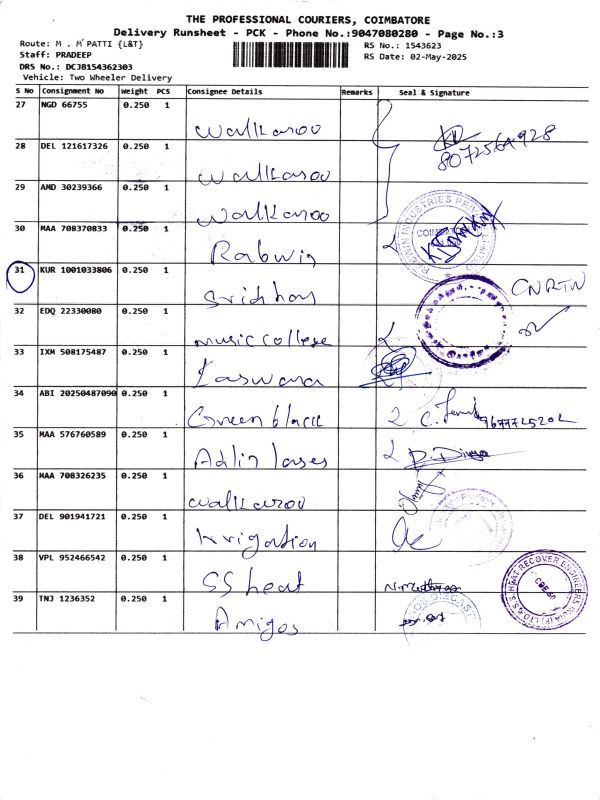 THE PROFESSIONAL COURIERS, COIMBATORE
Delivery Runsheet - PCK - Phone No.:9047080280 - Page No.:3
Route: M . M PATTI {L&T}
Staff: PRADEEP
DRS No.: DCJB154362303
Vehicle: Two Wheeler Delivery
RS No.: 1543623
RS Date: 02-May-2025
S No Consignment No Weight PCS Consignee Details Remarks Seal & Signature
27 NGD 66755 0.250 1 Walkaroo
8072564928
28 DEL 121617326 0.250 1 Walkaroo
29 AMD 30239366 0.250 1 Walkaroo
30 MAA 708370833 0.250 1 Rabwin
31 KUR 1001033806 0.250 1 Sridhar
32 EDQ 22330080 0.250 1 music college
33 IXM 508175487 0.250 1
34 ABI 20250487090 0.250 1 Green black
9677725202
35 MAA 576760589 0.250 1
36 MAA 708326235 0.250 1 Walkaroo
37 DEL 901941721 0.250 1 Irrigation
38 VPL 952466542 0.250 1 SS heat
39 TNJ 1236352 0.250 1 Amigos